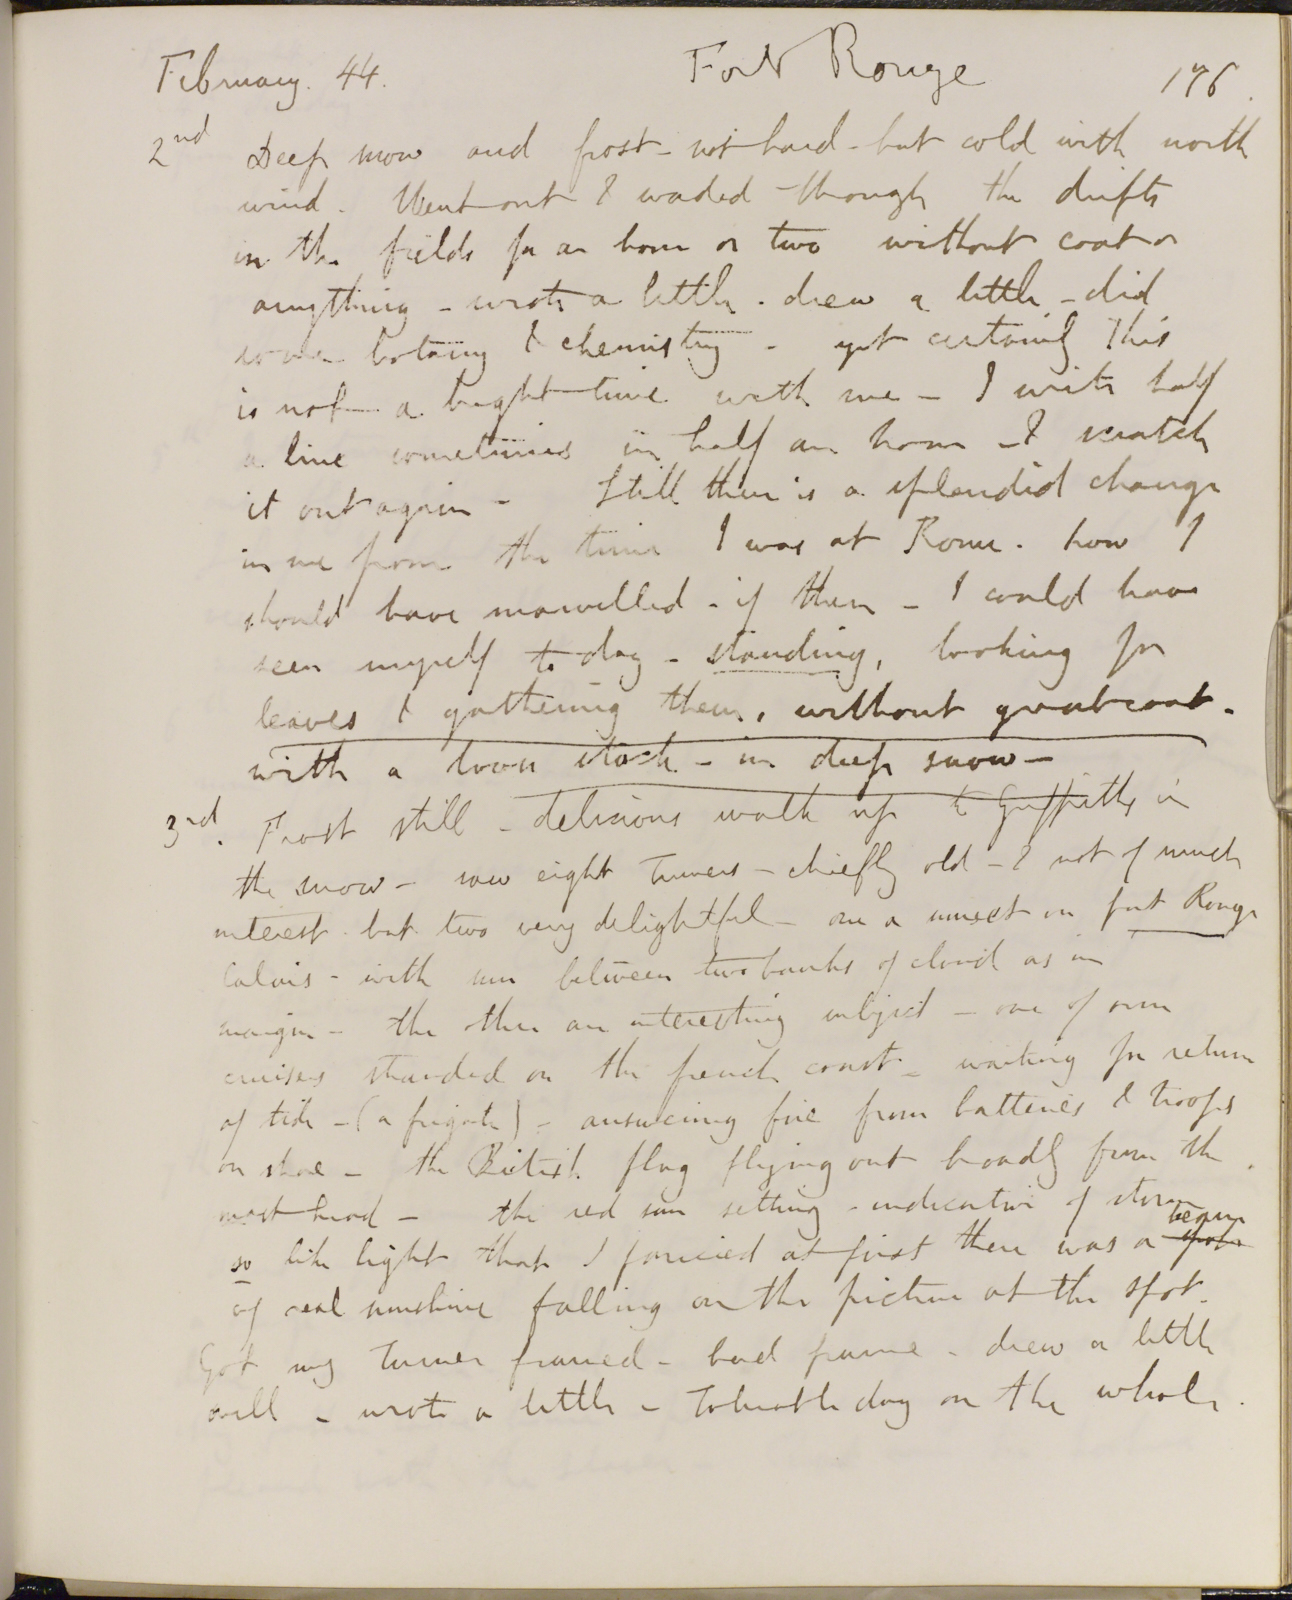 February. 44.
Fort Rouge
176.
2nd Deep snow and frost - not hard - but cold with north
wind. Went out & waded through the drifts
in the fields for an hour or two without coat or
anything - wrote a little - drew a little - did
some botany & chemistry - yet certainly this
is not a bright time with me - I write half
a line sometimes in half an hour - & scratch
it out again - Still there is a splendid change
in me from the time I was at Rome. how I
should have marvelled - if then - I could have
seen myself to day - standing, looking for
leaves & gathering them, without greatcoat -
with a loose stock - in deep snow -
3rd. Frost still - delicious walk up to Griffiths in
the snow - saw eight Turners - chiefly old - & not of much
interest but two very delightful - one a sunset on fort Rouge
Calais - with sun between two banks of cloud as in
margin - the other an interesting subject - one of our
cruisers stranded on the french coast - waiting for return
of tide - (a frigate) - answering fire from batteries & troops
on shore - the British flag flying out broadly from the
mast head - the red sun setting - indicative of storm
so like light that I fancied at first there was a beam
of real sunshine falling on the picture at the spot.
Got my Turner framed - bad frame - drew a little
well - wrote a little - Tolerable day on the whole.